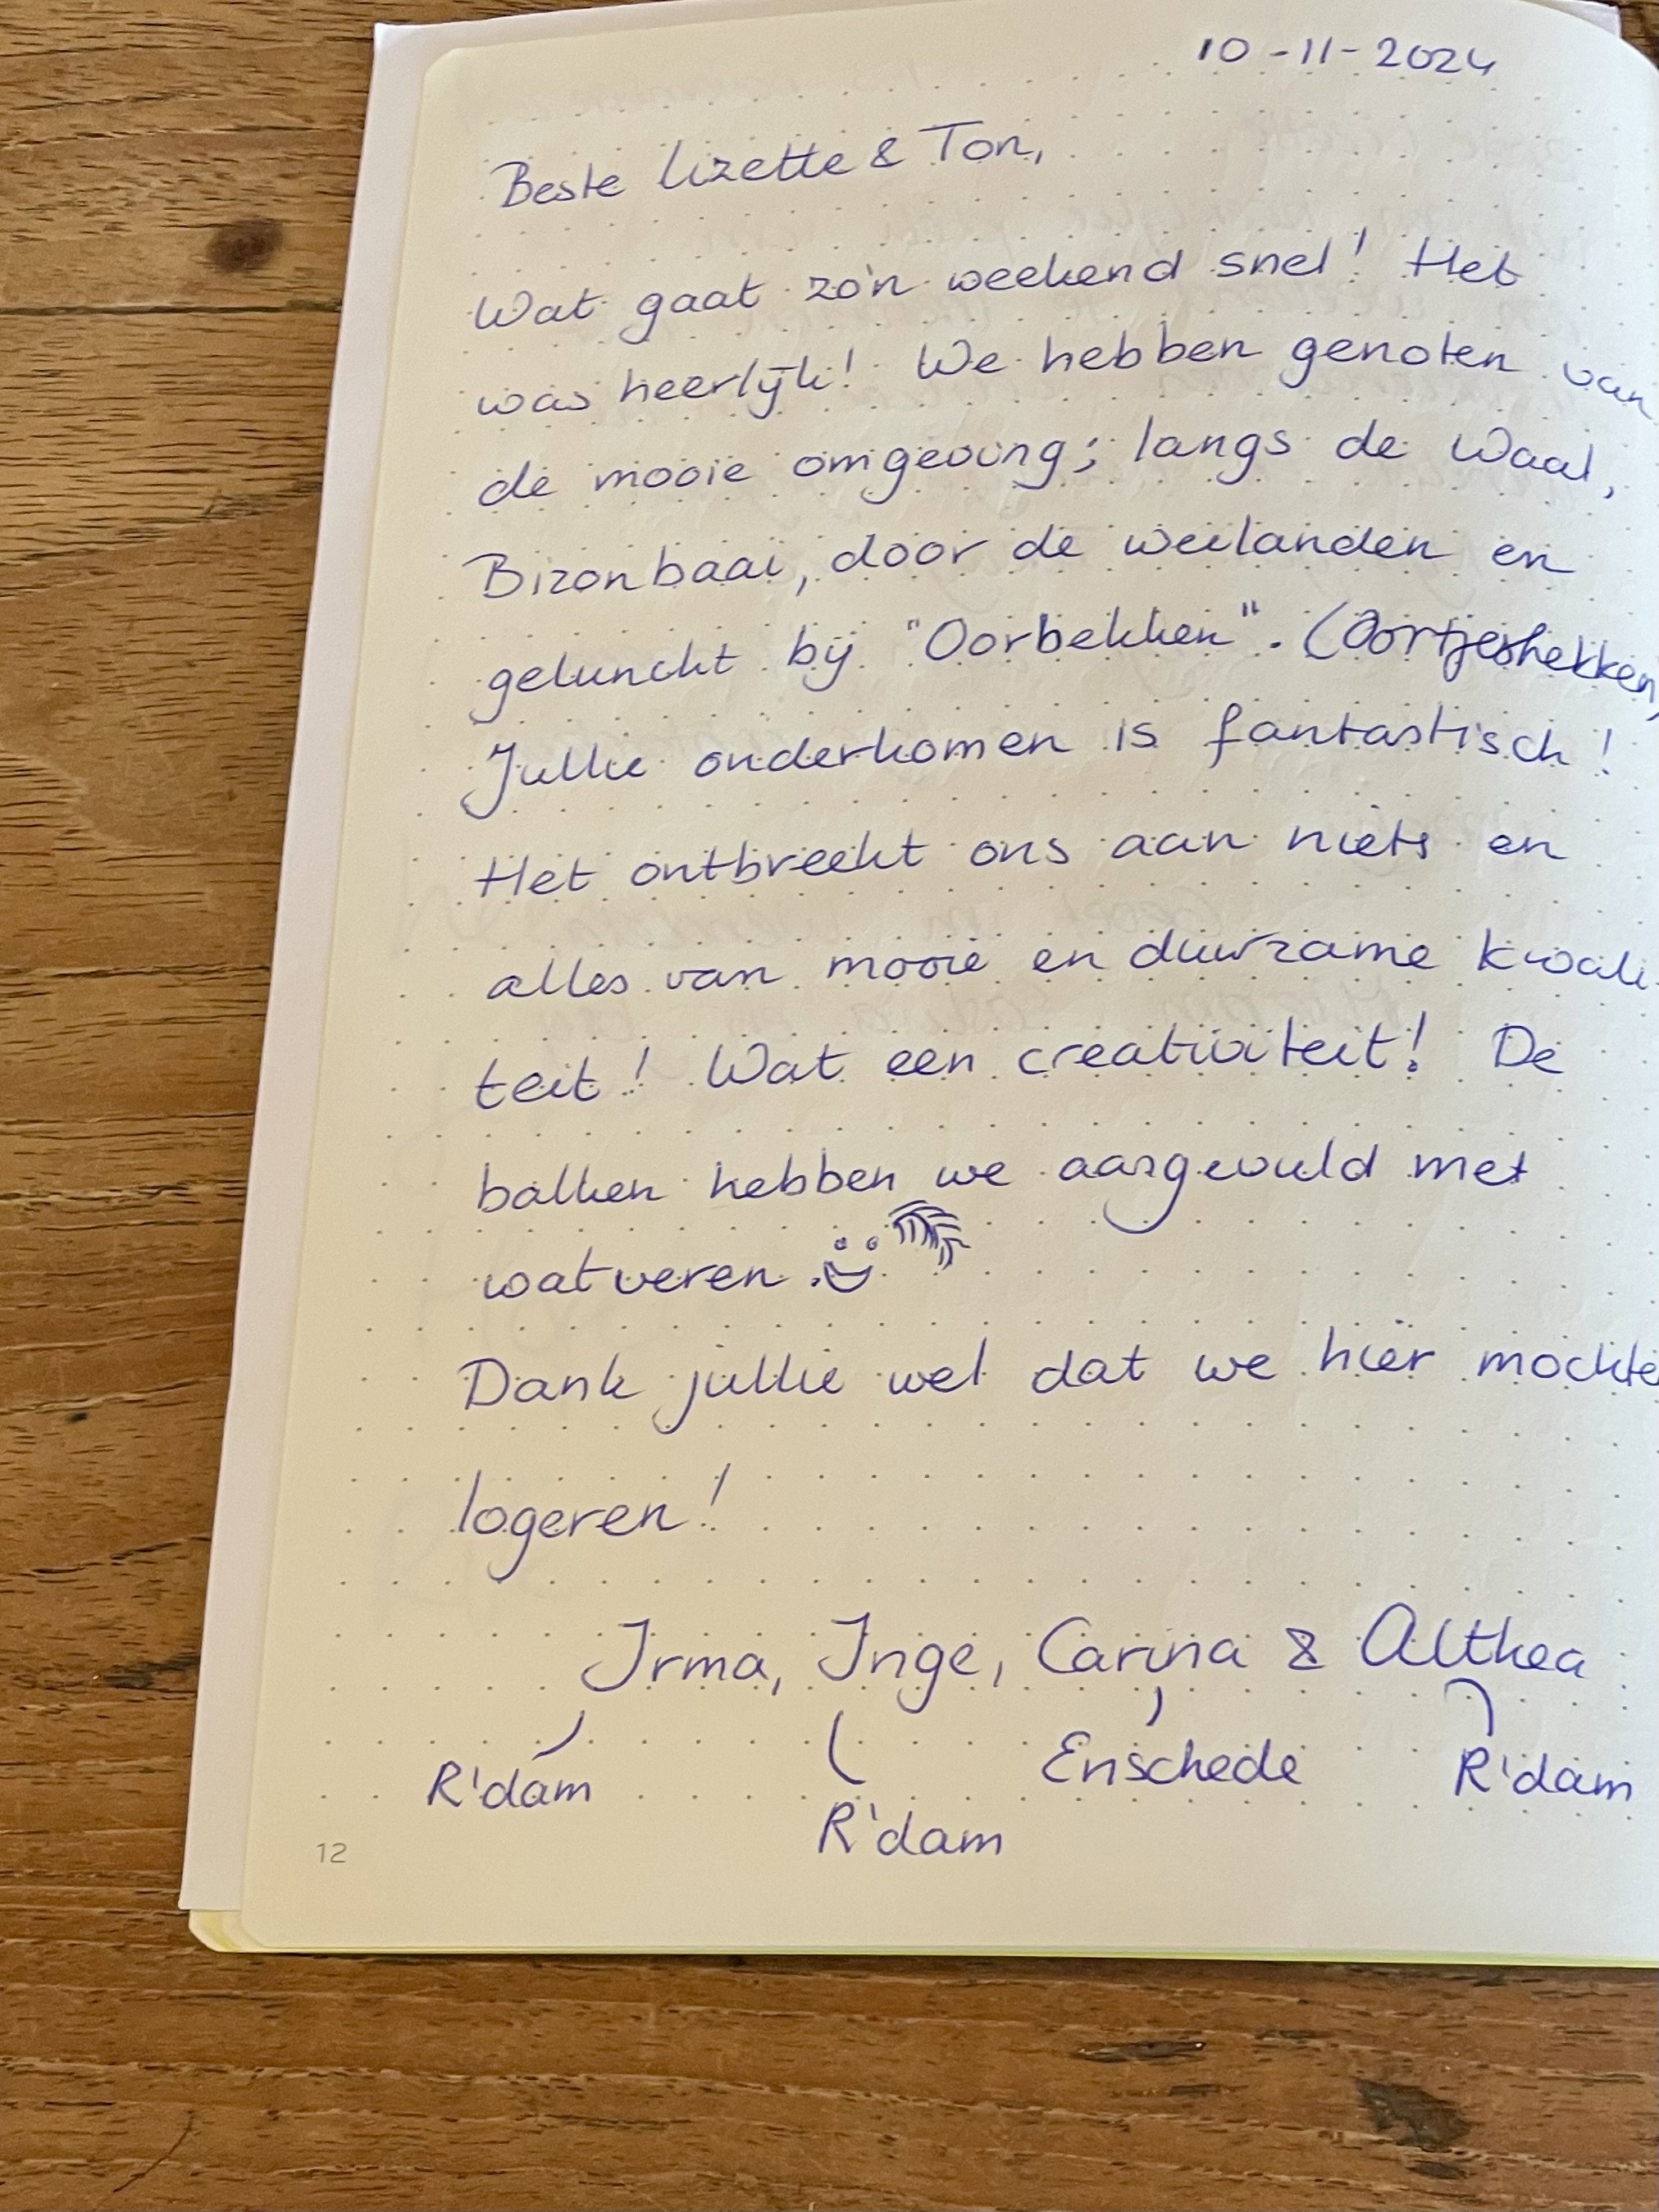 10-11-2024
Beste Lizette & Ton,
Wat gaat zo'n weekend snel! Het
was heerlijk! We hebben genoten van
de mooie omgeving; langs de Waal,
Bizonbaai, door de weilanden en
geluncht bij "Oorbekken". (Oortjeshekken)
Jullie onderkomen is fantastisch!
Het ontbreekt ons aan niets en
alles van mooie en duurzame kwali-
teit! Wat een creativiteit! De
balken hebben we aangevuld met
wat veren.
Dank jullie wel dat we hier mochten
logeren!
Irma, Inge, Carina & Althea
R'dam Enschede R'dam
R'dam
12